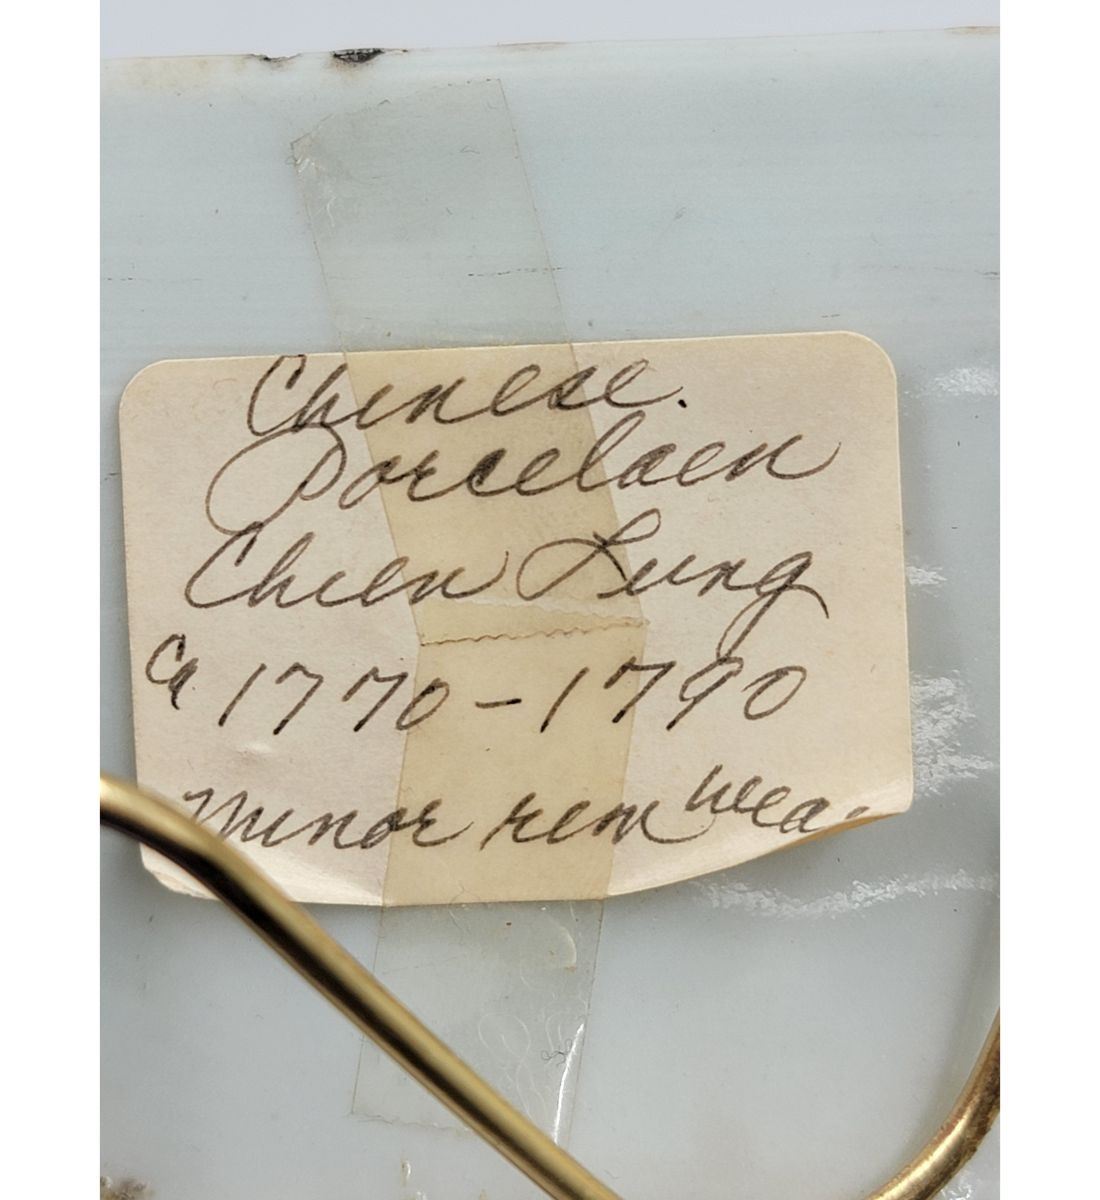 Chinese.
Porcelain
Chien Lung
Ca 1770-1790
minor rim wear